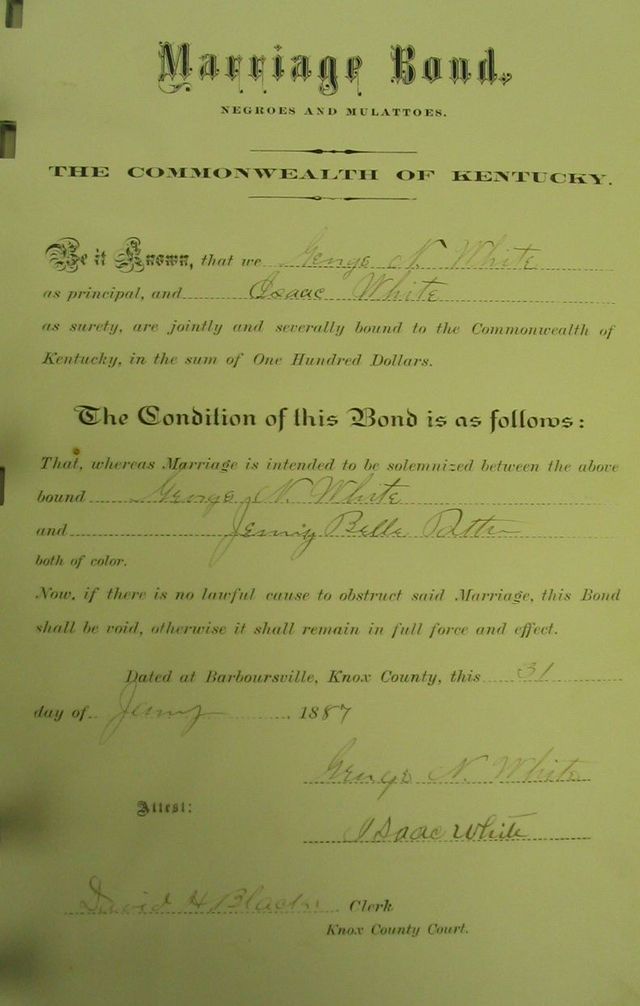 Marriage Bond.
NEGROES AND MULATTOES.
THE COMMONWEALTH OF KENTUCKY.
Be it Known, that we George N. White
as principal, and Isaac White
as surety, are jointly and severally bound to the Commonwealth of
Kentucky, in the sum of One Hundred Dollars.
The Condition of this Bond is as follows:
That, whereas Marriage is intended to be solemnized between the above
bound George N. White
and Belle
both of color.
Now, if there is no lawful cause to obstruct said Marriage, this Bond
shall be void, otherwise it shall remain in full force and effect.
Dated at Barboursville, Knox County, this 31
day of 1887
George N. White
Attest:
Isaac White
David H Black Clerk
Knox County Court.